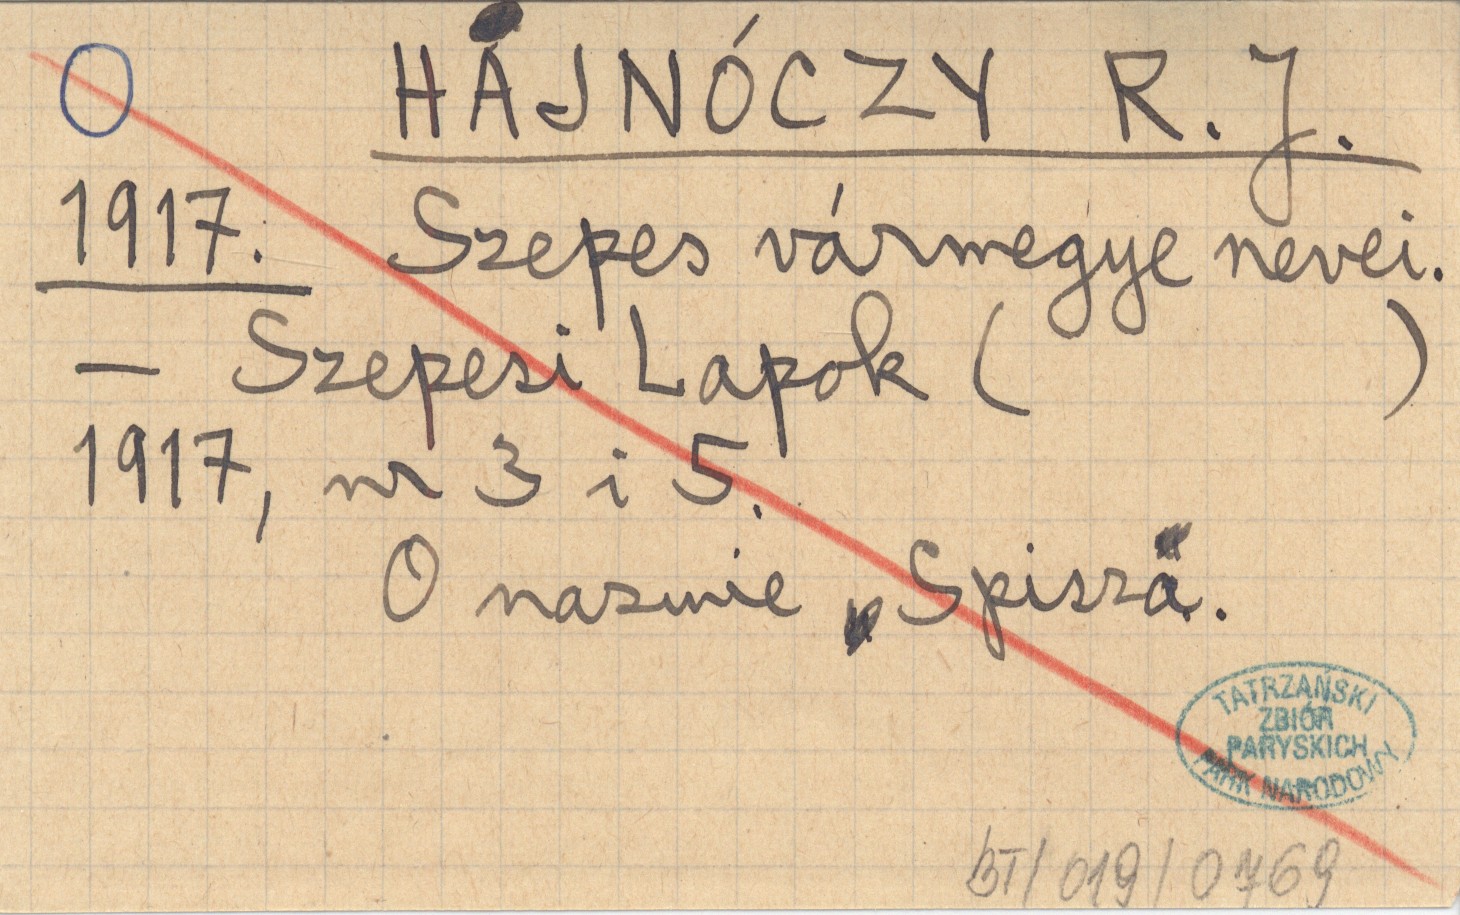 O HAJNÓCZY R. J.
1917. Szepes vármegye nevei.
— Szepesi Lapok ( )
1917, nr 3 i 5.
O nazwie Spisza.
TATRZAŃSKI
ZBIÓR
PARYSKICH
PARK NARODOWY
BT/019/0769